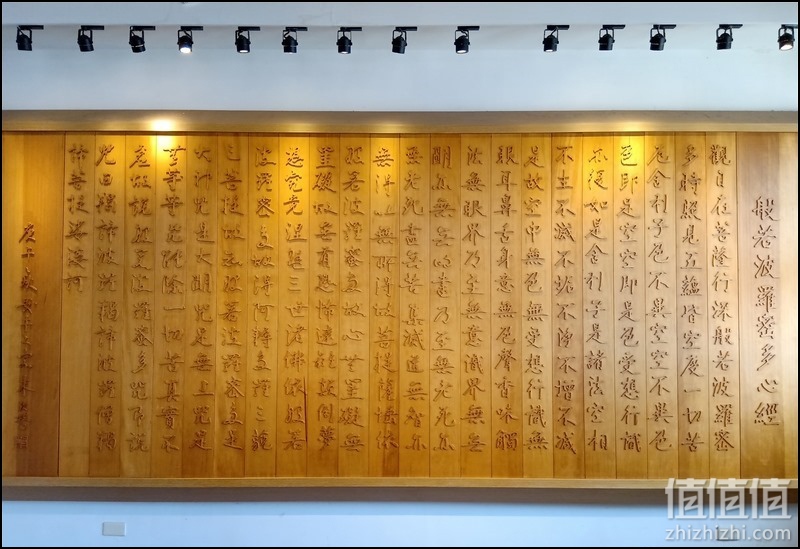 般若波羅蜜多心經
觀自在菩薩行深般若波羅蜜
多時照見五蘊皆空度一切苦
厄舍利子色不異空空不異色
色即是空空即是色受想行識
亦復如是舍利子是諸法空相
不生不滅不垢不淨不增不減
是故空中無色無受想行識無
眼耳鼻舌身意無色聲香味觸
法無眼界乃至無意識界無無
明亦無無明盡乃至無老死亦
無老死盡無苦集滅道無智亦
無得以無所得故菩提薩埵依
般若波羅蜜多故心無罣礙無
罣礙故無有恐怖遠離顛倒夢
想究竟涅槃三世諸佛依般若
波羅蜜多故得阿耨多羅三藐
三菩提故知般若波羅蜜多是
大神咒是大明咒是無上咒是
無等等咒能除一切苦真實不
虛故說般若波羅蜜多咒即說
咒曰揭諦波羅揭諦波羅僧揭
諦菩提娑婆訶
庚午
值值值
zhizhizhi.com